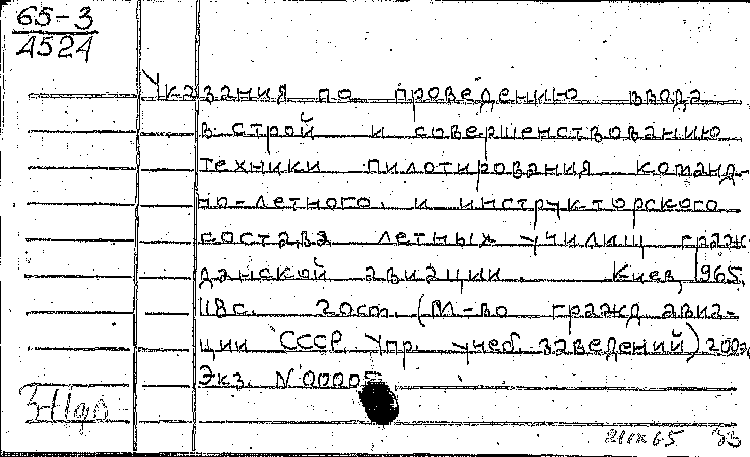 65-3
4524
Указания по проведению ввода
в строй и совершенствованию
техники пилотирования команд-
но-летного и инструкторского
состава летных училищ граж-
данской авиации. Киев, 1965.
118с. 20см. (М-во гражд авиа-
ции СССР. Упр. учеб. заведений) 200э
Экз. N 00005
65 33